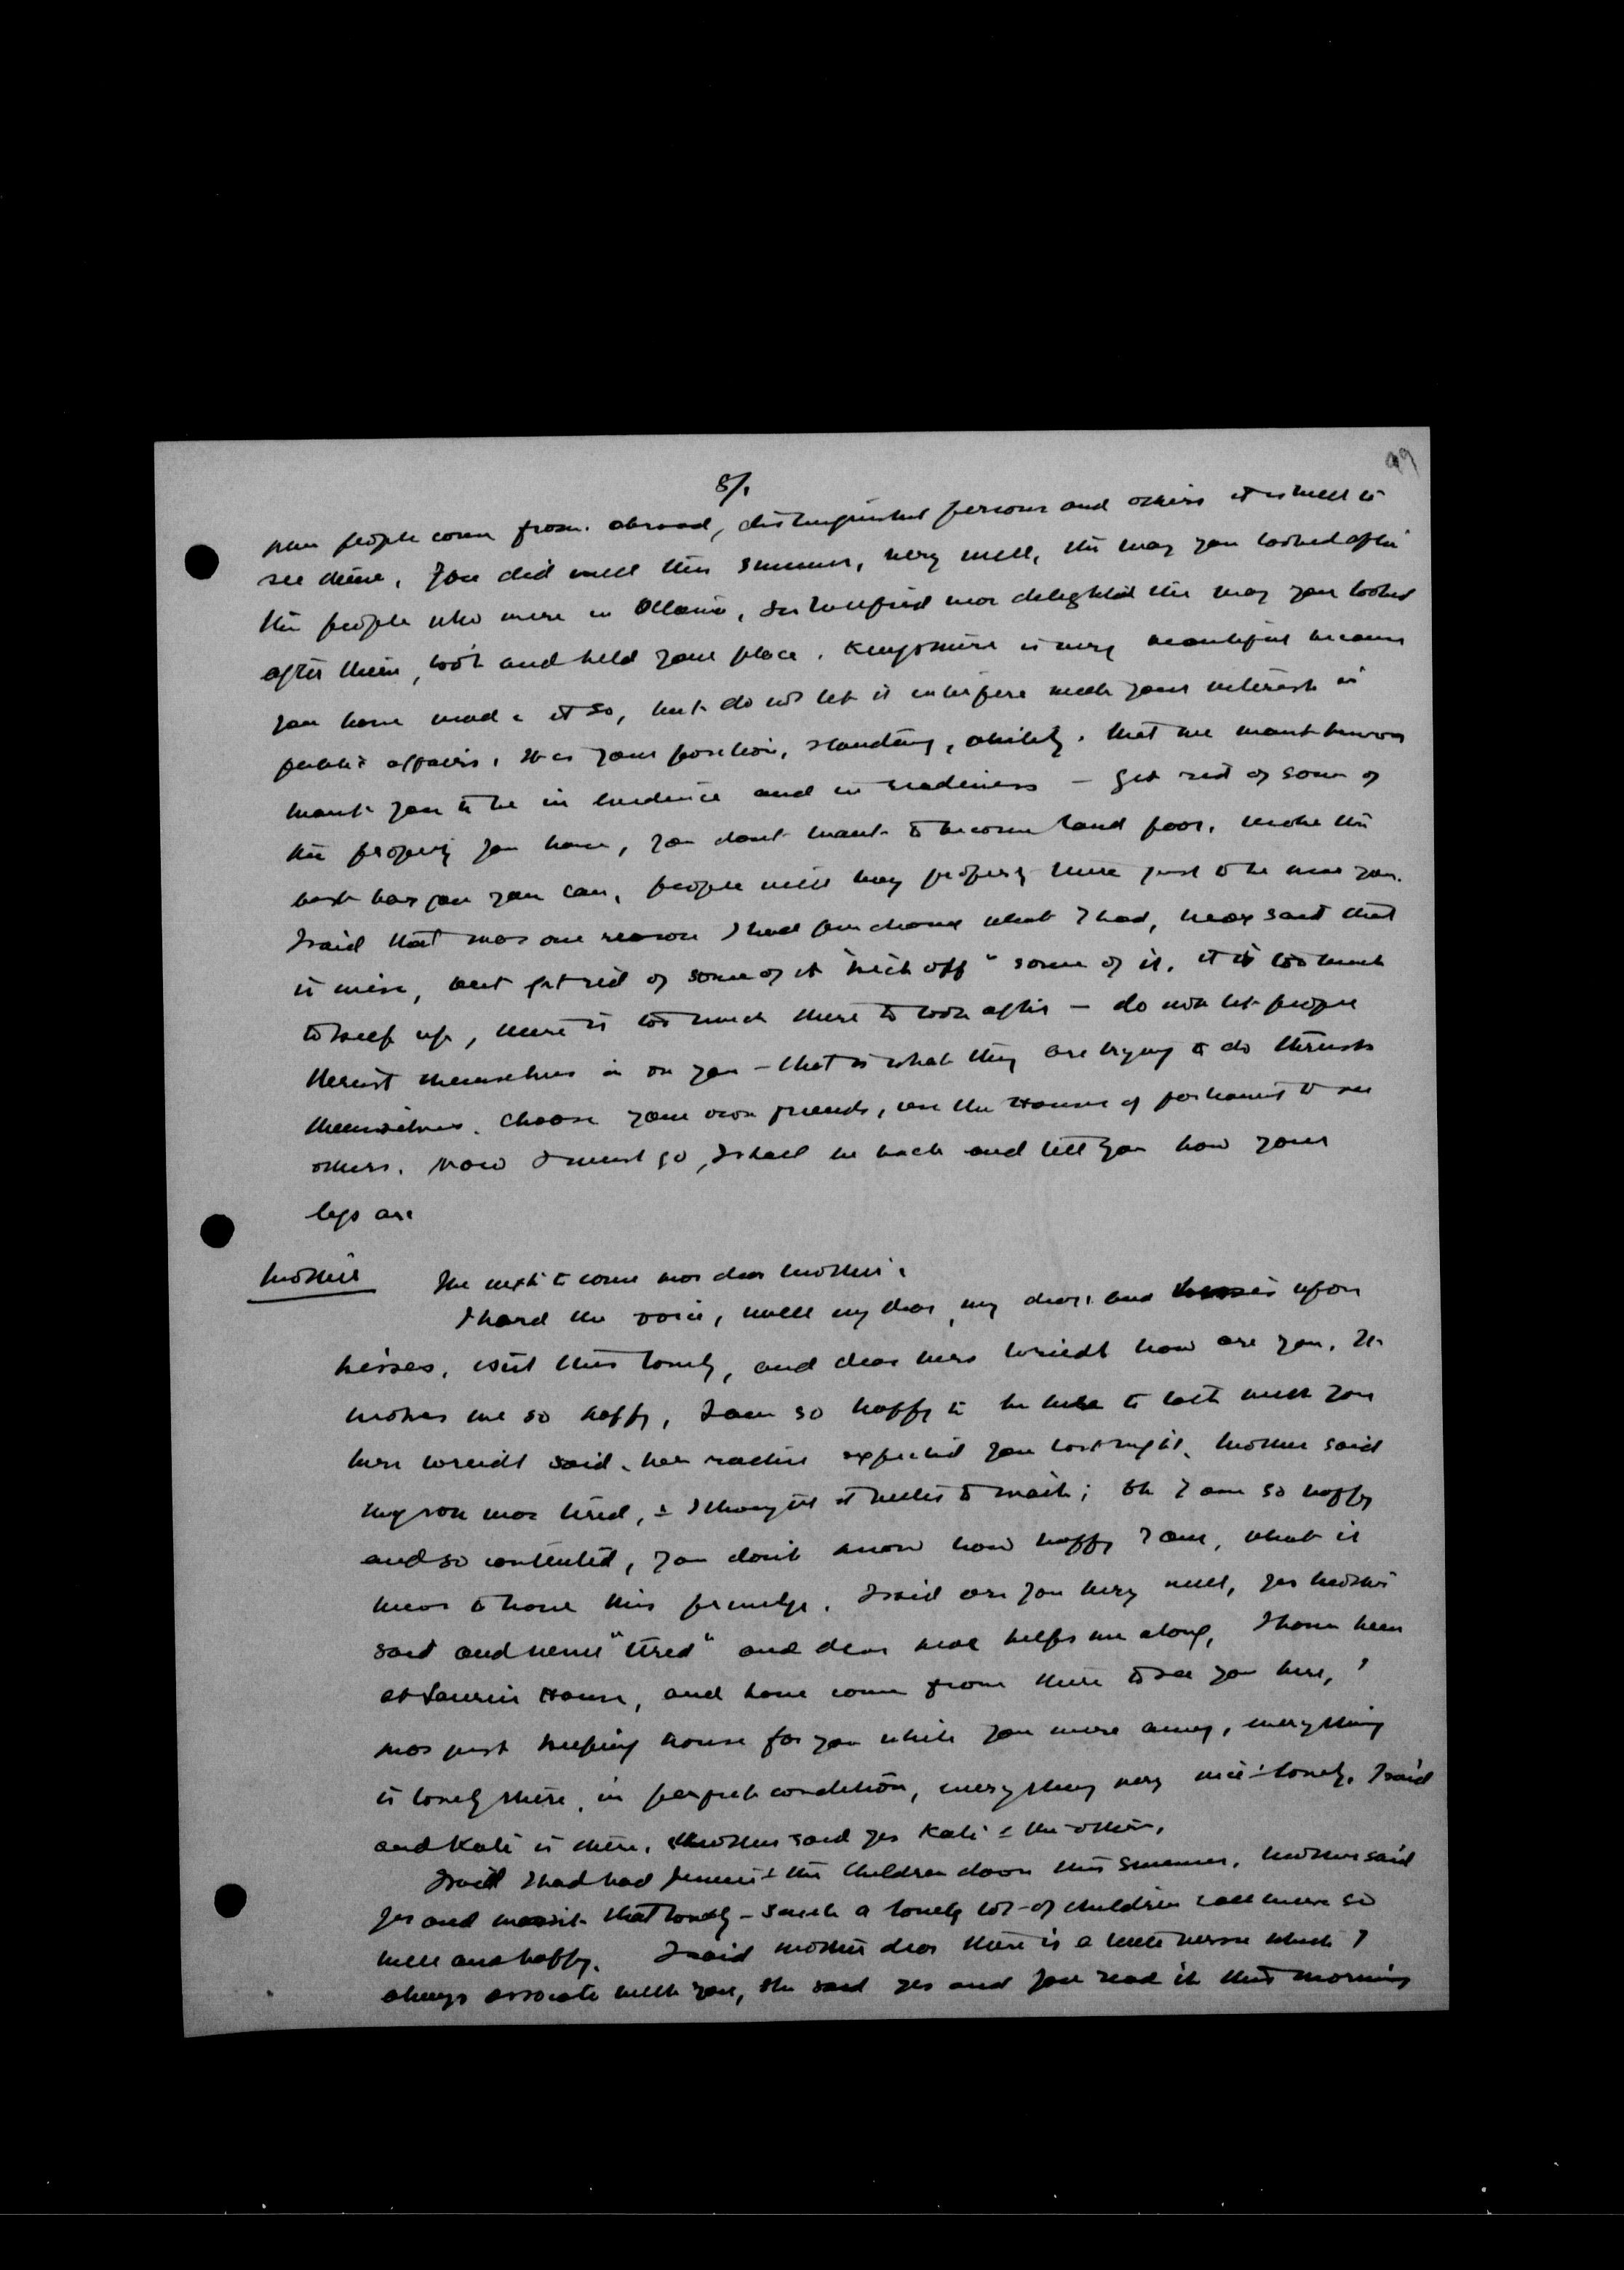 99
8/.
when people come from abroad, distinguished persons and others it is well to
see them. You did well this summer, very well, the way you looked after
the people who were in Ottawa, Sir Wilfrid was delighted the way you looked
after them, took and held your place. Kingsmere is very beautiful because
you have made it so, but do not let it interfere with your interest in
public affairs. It is your position, standing, ability. that we want
want you to be in evidence and in readiness – get rid of some of
the property you have, you dont want to become land poor, make the
best bargain you can, people will buy property there just to be near you.
I said that was one reason I had purchased what I had, Max said that
is wise, but get rid of some of it "kick off" some of it. it is too much
to keep up, there is too much there to look after – do not let people
thrust themselves in on you – that is what they are trying to do thrusts
themselves. Choose your own friends, use the House of parliament to see
others. Now I must go, I shall be back and tell you how your
legs are
Mother The next to come was dear mother.
I heard the voice, well my dear, my dear, and kisses upon
kisses, isnt this lovely, and dear Mrs Wriedt how are you. It
makes me so happy, I am so happy to be here to talk with you
Mrs Wriedt said, we rather expected you last night. Mother said
my son was tired, & I thought it better to wait; Oh I am so happy
and so contented, you don't know how happy I am, what it
means to have this privilege. I said are you very well, yes mother
said and never "tired" and dear Max helps me along, I have been
at Laurier House, and have come from there to see you here, I
was just keeping house for you while you were away, everything
is lovely there, in perfect condition, everything very nice & lovely. I said
and Kate is there, Mother said yes Kate & the others.
I said I had had Jennie & the children down this summer, mother said
yes and wasn't that lovely – such a lovely lot of children & all were so
well and happy. I said mother dear there is a little verse which I
always associate with you, she said yes and you read it this morning